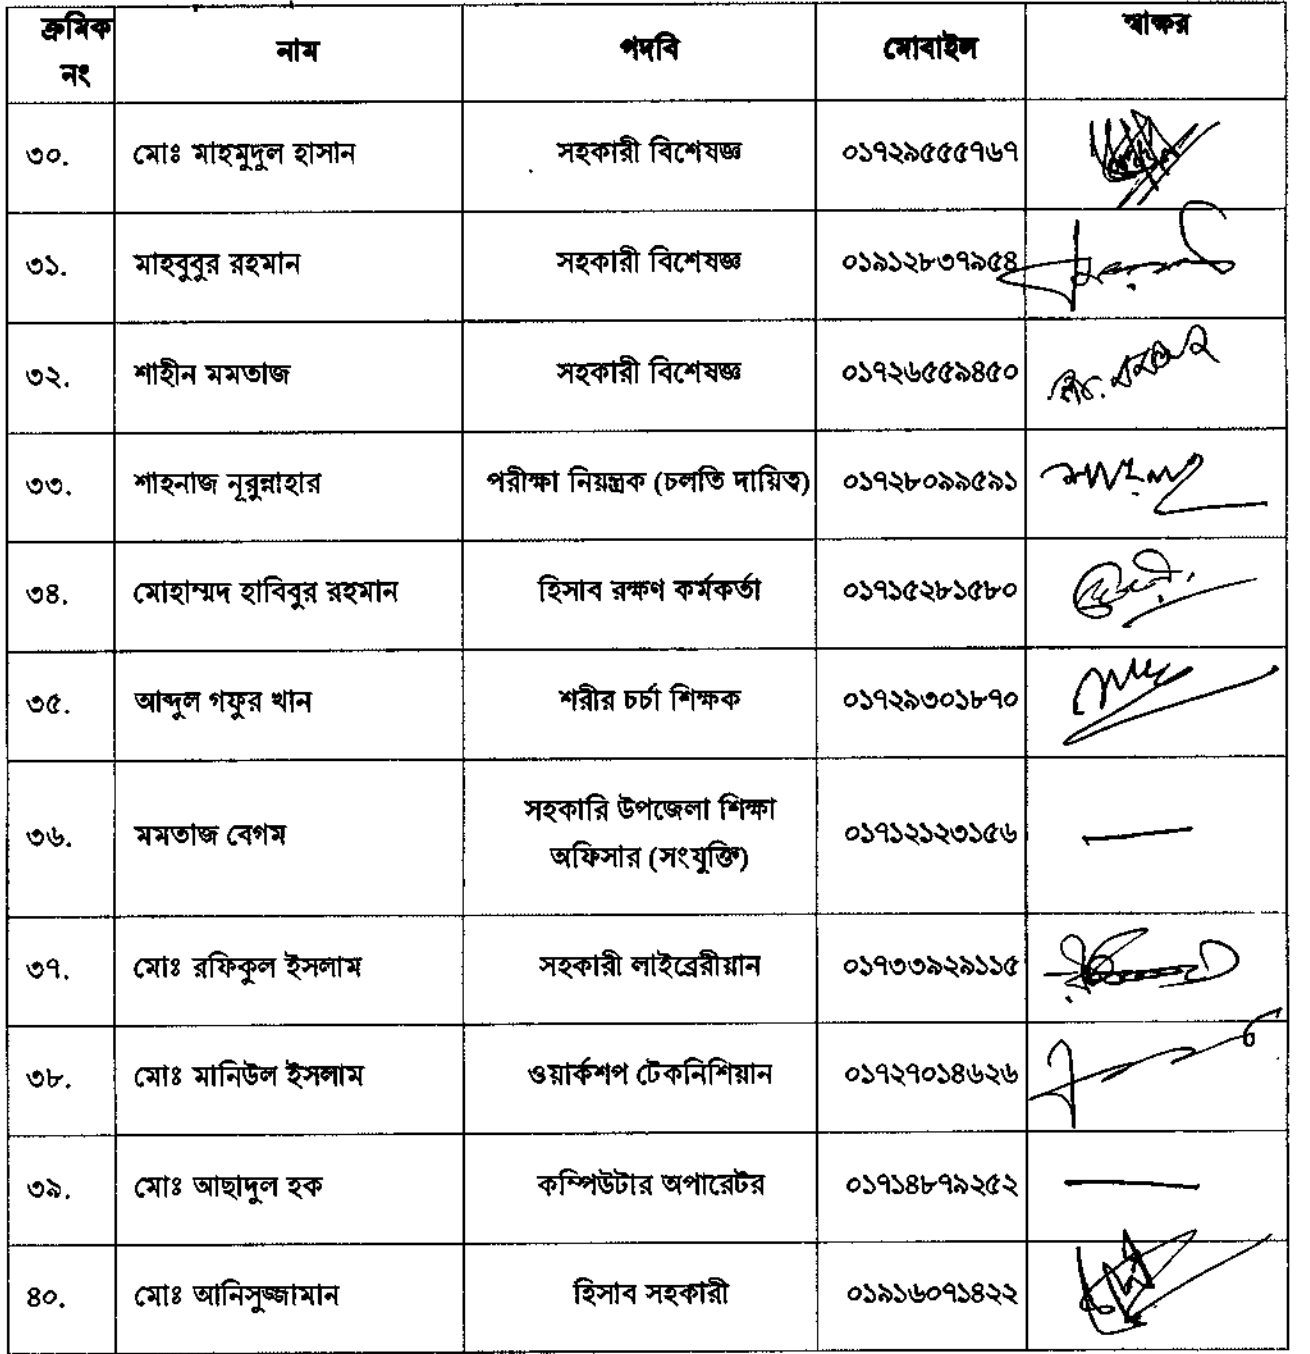 ক্রমিক নং নাম পদবি মোবাইল স্বাক্ষর
৩০. মোঃ মাহমুদুল হাসান সহকারী বিশেষজ্ঞ ০১৭২৯৫৫৫৭৬৭
৩১. মাহবুবুর রহমান সহকারী বিশেষজ্ঞ ০১৯১২৮৩৭৯৫৪
৩২. শাহীন মমতাজ সহকারী বিশেষজ্ঞ ০১৭২৬৫৫৯৪৫০
৩৩. শাহনাজ নূরুন্নাহার পরীক্ষা নিয়ন্ত্রক (চলতি দায়িত্ব) ০১৭২৮০৯৯৫৯১
৩৪. মোহাম্মদ হাবিবুর রহমান হিসাব রক্ষণ কর্মকর্তা ০১৭১৫২৮১৫৮০
৩৫. আব্দুল গফুর খান শরীর চর্চা শিক্ষক ০১৭২৯৩০১৮৭০
৩৬. মমতাজ বেগম সহকারি উপজেলা শিক্ষা
অফিসার (সংযুক্তি) ০১৭১২১২৩১৫৬
৩৭. মোঃ রফিকুল ইসলাম সহকারী লাইব্রেরীয়ান ০১৭৩৩৯২৯১১৫
৩৮. মোঃ মানিউল ইসলাম ওয়ার্কশপ টেকনিশিয়ান ০১৭২৭০১৪৬২৬
৩৯. মোঃ আছাদুল হক কম্পিউটার অপারেটর ০১৭১৪৮৭৯২৫২
৪০. মোঃ আনিসুজ্জামান হিসাব সহকারী ০১৯১৬০৭১৪২২